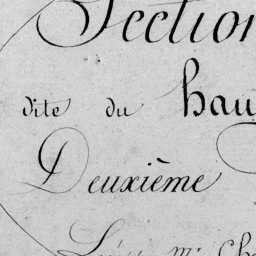 Section
dite du hau
Deuxième